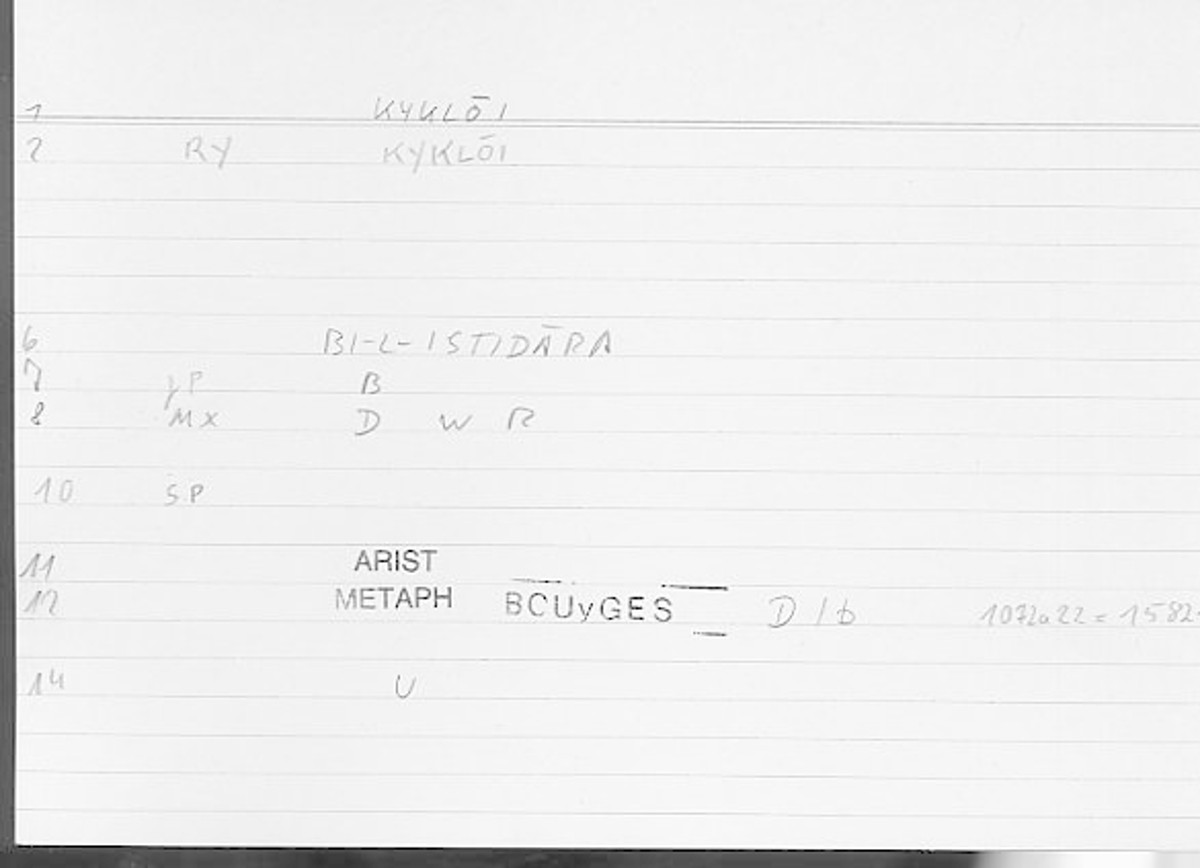 1 KYKLŌI
2 RY KYKLŌI
6 BI-L-ISTIDĀRA
7 B
8 MX D W R
10 SP
11 ARIST
12 METAPH BCUyGES D 1b 1072a22 = 1582
14 U